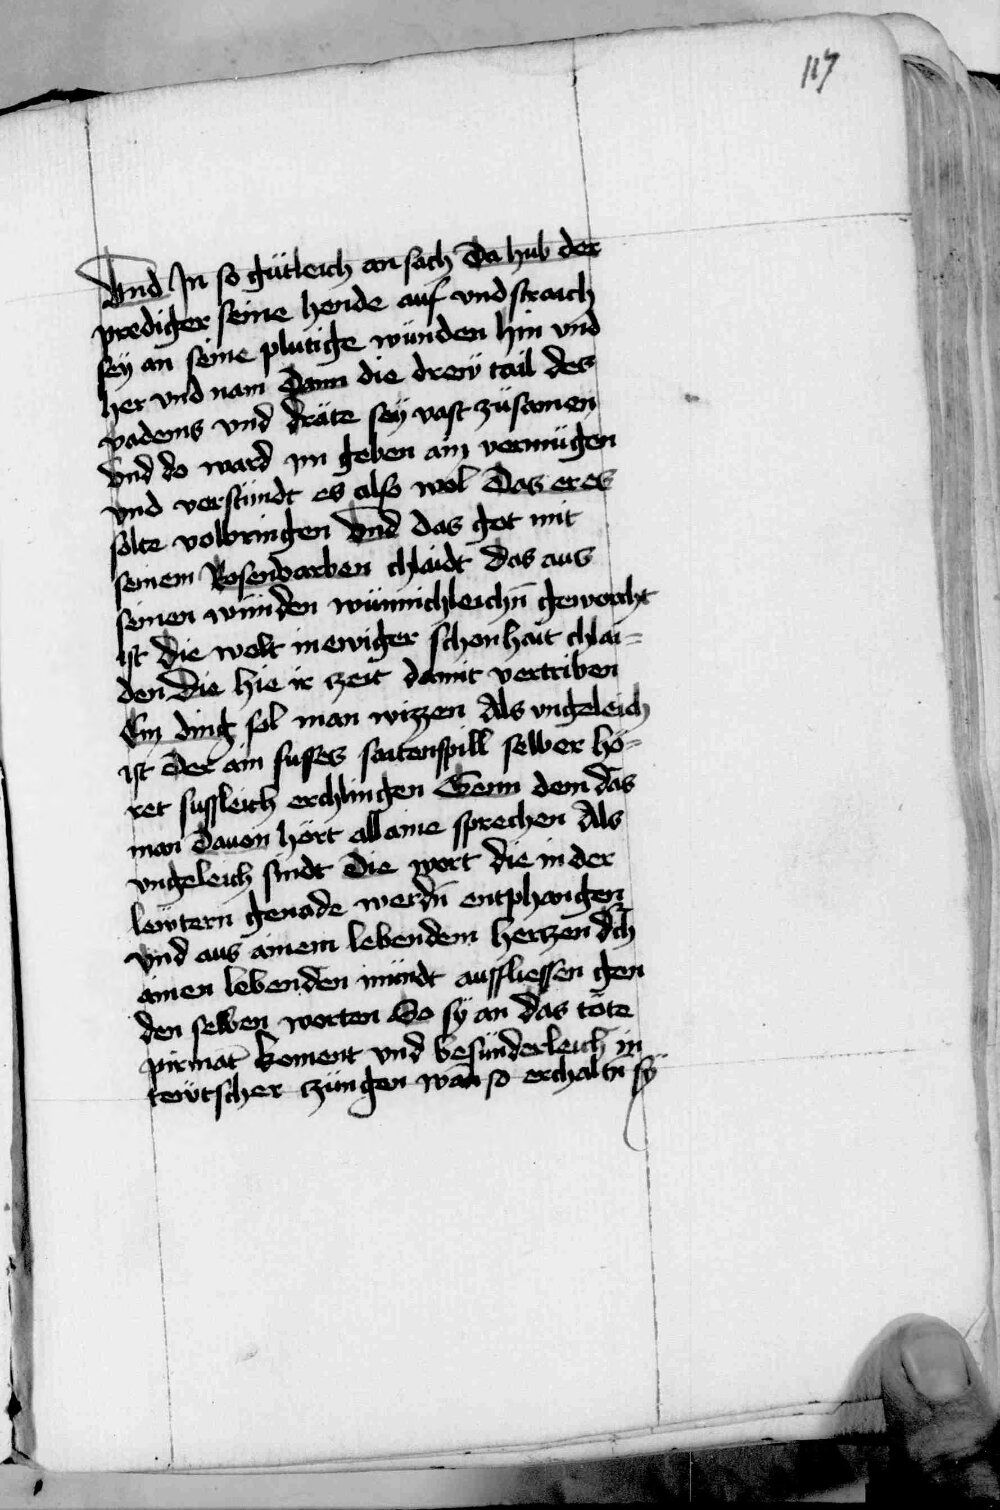 117
Vnd In so gütleich an sach Da hub der
prediger seine hende auf vnd straich
sey an seine plutige wünden hin vnd
her vnd nam Dann die drew tail des
vadems vnd dräte sey vast züsamen
Vnd do ward im geben ain vermügen
vnd verstündt es also wol Das er es
solte volbringen Vnd das got mit
seinem Rosenvarben chlaidt das aus
seinen wünden wünnichleichn̄ geworcht
ist Die welt in ewiger schonhait chlai=
den Die hie ir zeit damit vertriben
Ein ding sol man wizzen Als vngeleich
ist Der ain susses saitenspill selber hö=
ret susleich erchlingen Genn dem das
man Dauon hört allaine sprechen Als
vngeleich sindt Die wort die in der
lewtern genade werdn̄ entphangen
vnd aus ainem lebendem hertzen dch̄
ainen lebenden mündt ausfliessen gen
den selben worten So sÿ an das töte
pirmat koment vnd besünderleich in
tewtscher zungen wan̄ so erchaltn̄ sÿ